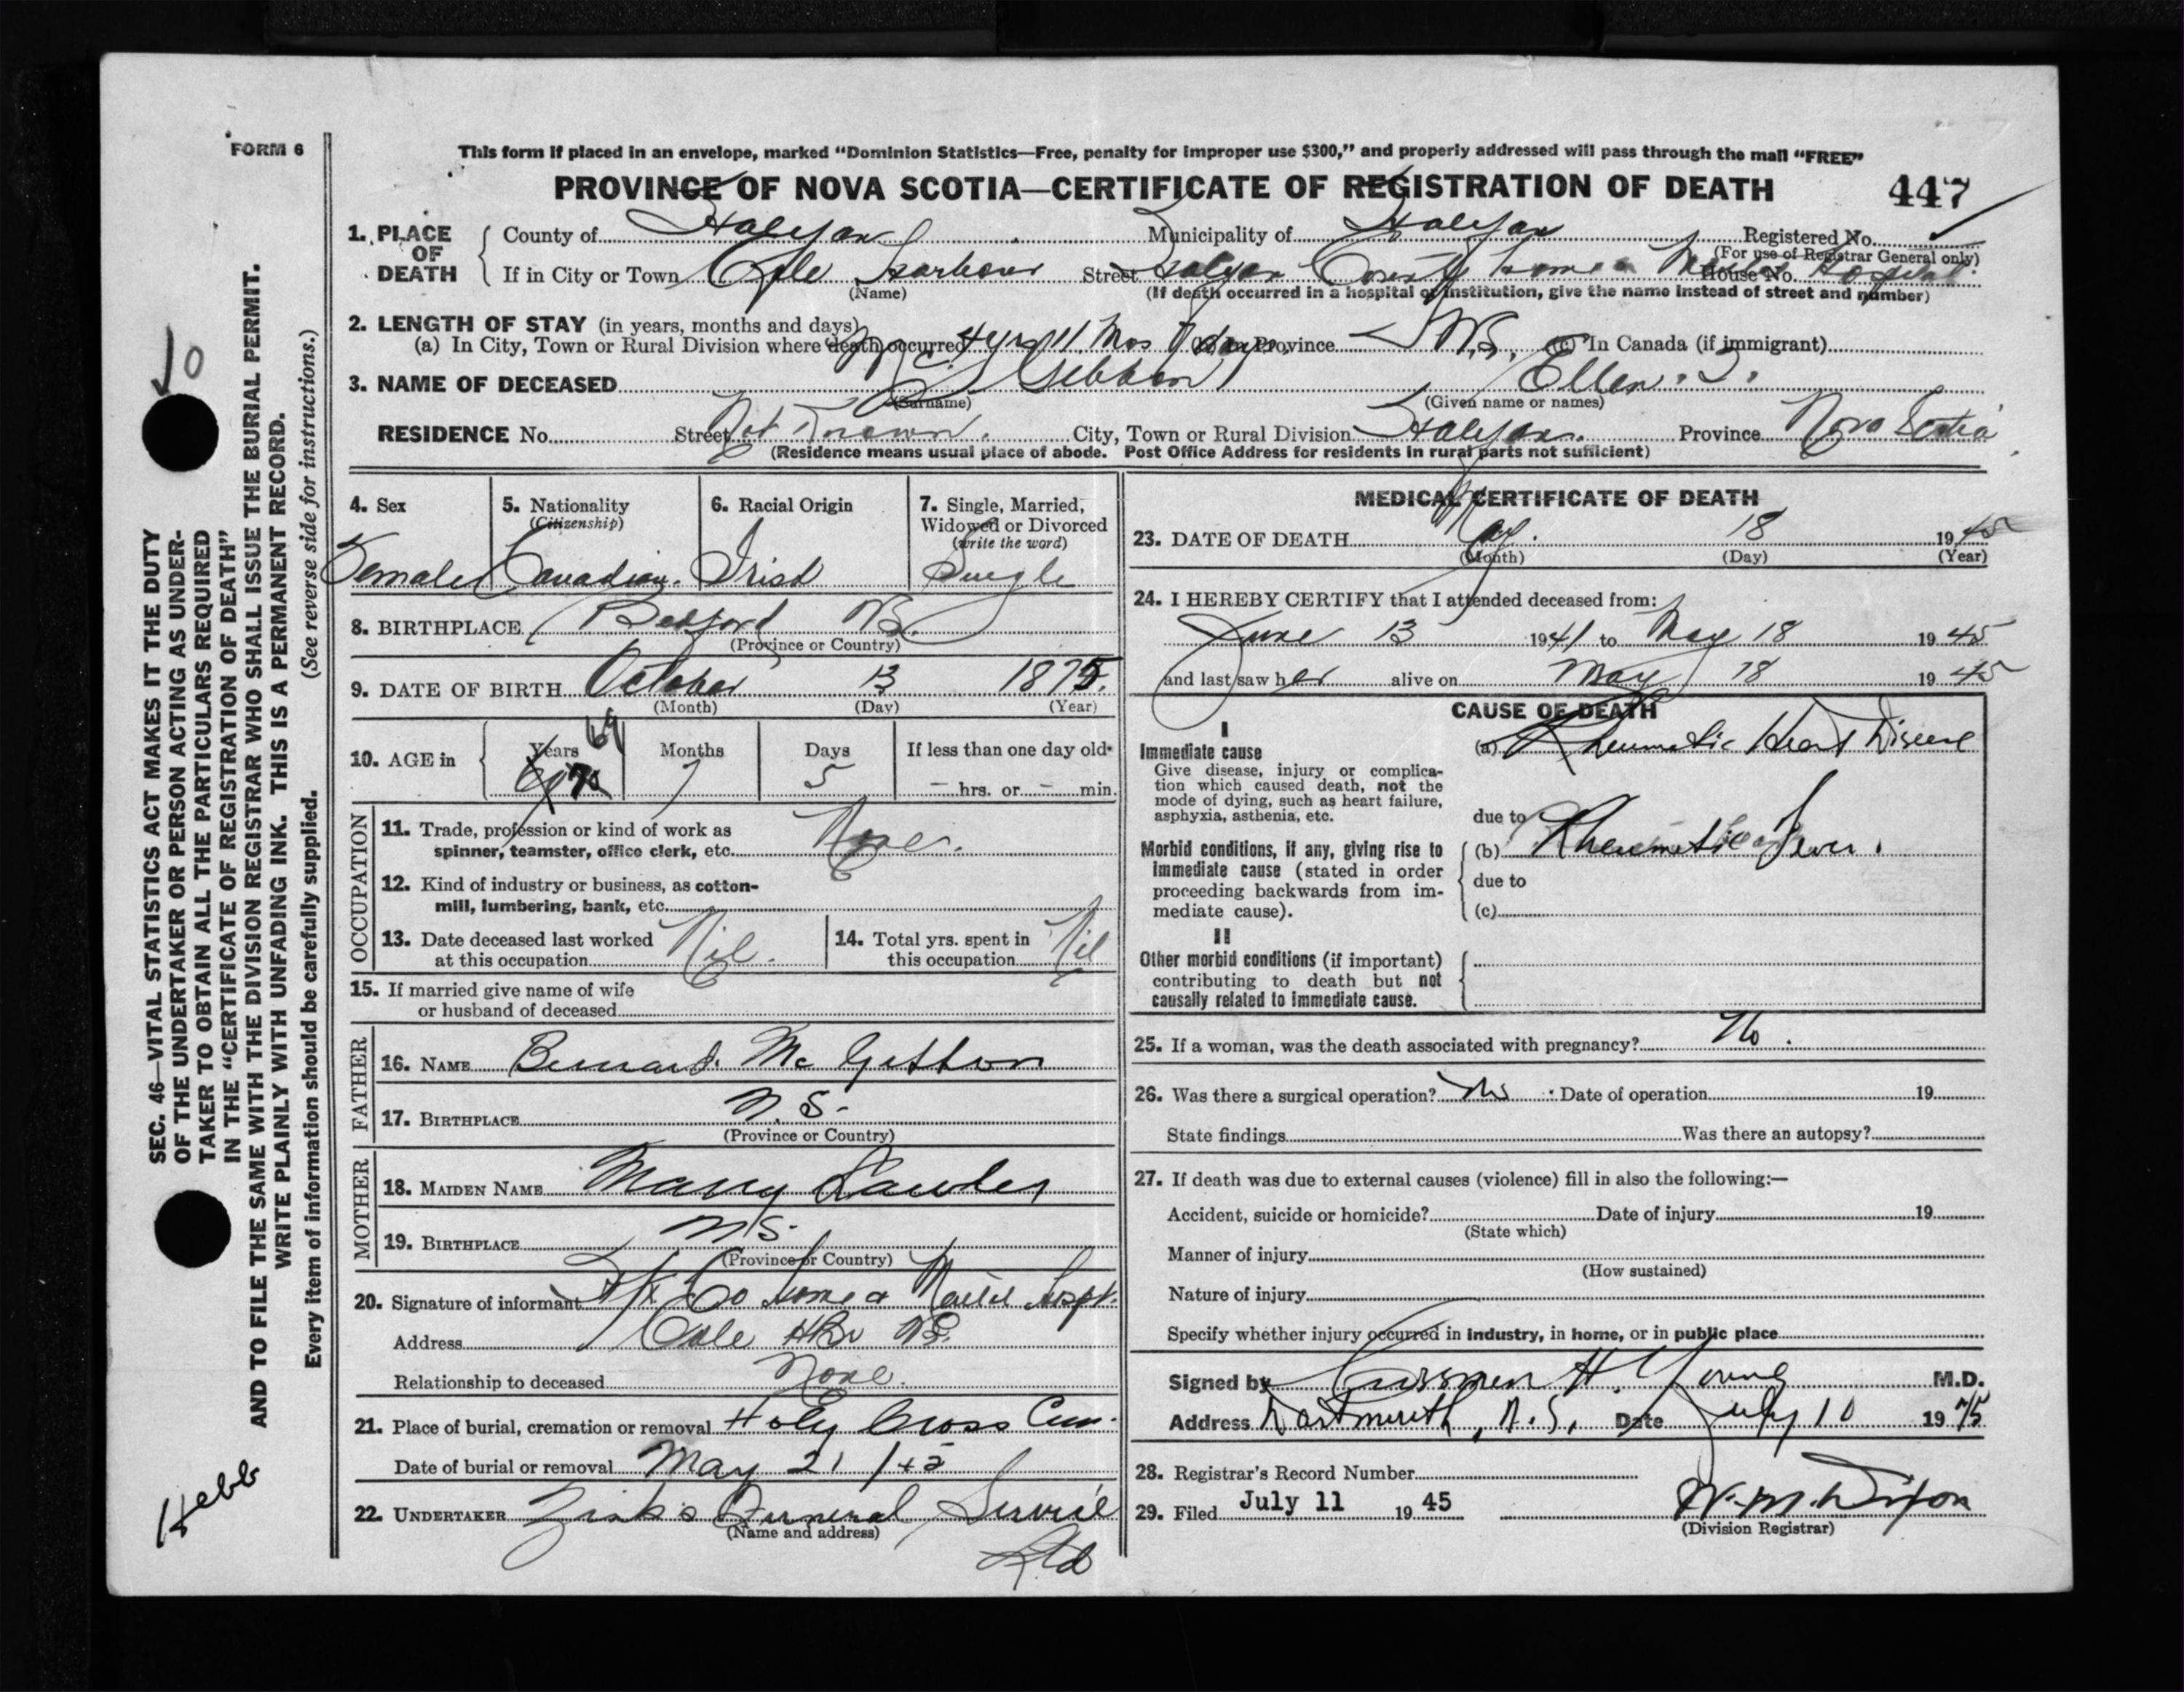 FORM 6
This form if placed in an envelope, marked "Dominion Statistics—Free, penalty for improper use $300," and properly addressed will pass through the mail "FREE"
PROVINCE OF NOVA SCOTIA—CERTIFICATE OF REGISTRATION OF DEATH 447
1. PLACE OF DEATH County of Halifax Municipality of Halifax Registered No.
(For use of Registrar General only)
If in City or Town Cole Harbour Street Halifax County Home & Hospital House No.
(Name) (If death occurred in a hospital or institution, give the name instead of street and number)
2. LENGTH OF STAY (in years, months and days)
(a) In City, Town or Rural Division where death occurred 4 yrs 11 Mos 7 days Province N.S. (c) In Canada (if immigrant)
3. NAME OF DECEASED Mc Gibbon Ellen
(Surname) (Given name or names)
RESIDENCE No. Street Not Known. City, Town or Rural Division Halifax. Province Nova Scotia
(Residence means usual place of abode. Post Office Address for residents in rural parts not sufficient)
4. Sex 5. Nationality (Citizenship) 6. Racial Origin 7. Single, Married, Widowed or Divorced (write the word)
Female Canadian. Irish Single
8. BIRTHPLACE Bedford N.S.
(Province or Country)
9. DATE OF BIRTH October 13 1875.
(Month) (Day) (Year)
10. AGE in Years Months Days If less than one day old
69 70 69 7 5 – hrs. or – min.
OCCUPATION
11. Trade, profession or kind of work as
spinner, teamster, office clerk, etc. None.
12. Kind of industry or business, as cotton-
mill, lumbering, bank, etc.
13. Date deceased last worked
at this occupation Nil.
14. Total yrs. spent in
this occupation Nil
15. If married give name of wife
or husband of deceased
FATHER
16. NAME Bernard Mc Gibbon
17. BIRTHPLACE N.S.
(Province or Country)
MOTHER
18. MAIDEN NAME Mary Lawler
19. BIRTHPLACE N S
(Province or Country)
20. Signature of informant Hfx Co Home & Hospt.
Address Cole Hbr N.S.
Relationship to deceased None.
21. Place of burial, cremation or removal Holy Cross Cem.
Date of burial or removal May 21/45
22. UNDERTAKER Zink's Funeral Service
(Name and address)
Ltd
MEDICAL CERTIFICATE OF DEATH
23. DATE OF DEATH May. 18 1945
(Month) (Day) (Year)
24. I HEREBY CERTIFY that I attended deceased from:
June 13 1941 to May 18 1945
and last saw her alive on May 18 1945
CAUSE OF DEATH
I
Immediate cause (a) Rheumatic Heart Disease
Give disease, injury or complica-
tion which caused death, not the
mode of dying, such as heart failure,
asphyxia, asthenia, etc. due to
Morbid conditions, if any, giving rise to (b) Rheumatic Fever.
immediate cause (stated in order
proceeding backwards from im- due to
mediate cause). (c)
II
Other morbid conditions (if important)
contributing to death but not
causally related to immediate cause.
25. If a woman, was the death associated with pregnancy? No.
26. Was there a surgical operation? No Date of operation 19
State findings Was there an autopsy?
27. If death was due to external causes (violence) fill in also the following:—
Accident, suicide or homicide? Date of injury 19
(State which)
Manner of injury
(How sustained)
Nature of injury
Specify whether injury occurred in industry, in home, or in public place
Signed by H. Young M.D.
Address Dartmouth, N.S. Date July 10 1945
28. Registrar's Record Number
29. Filed July 11 1945 W. M. Dixon
(Division Registrar)
SEC. 46—VITAL STATISTICS ACT MAKES IT THE DUTY
OF THE UNDERTAKER OR PERSON ACTING AS UNDER-
TAKER TO OBTAIN ALL THE PARTICULARS REQUIRED
IN THE "CERTIFICATE OF REGISTRATION OF DEATH"
AND TO FILE THE SAME WITH THE DIVISION REGISTRAR WHO SHALL ISSUE THE BURIAL PERMIT.
WRITE PLAINLY WITH UNFADING INK. THIS IS A PERMANENT RECORD.
Every item of information should be carefully supplied. (See reverse side for instructions.)
Hebb